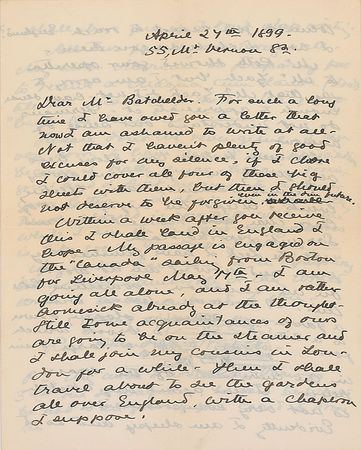 April 27th 1899.
55, Mt Vernon St.
Dear Mr Batchelder. For such a long
time I have owed you a letter that
now I am ashamed to write at all.
Not that I haven't plenty of good
excuses for my silence, if I chose
I could cover all four of these big
sheets with them, but then I should
not deserve to be forgiven even in the dim future.
Within a week after you receive
this I shall land in England I
hope - My passage is engaged on
the "Canada" sailing from Boston
for Liverpool May 17th. I am
going all alone and I am rather
homesick already at the thought.
Still some acquaintances of ours
are going to be on the steamer and
I shall join my cousins in Lon-
don for a while. Then I shall
travel about to see the gardens
all over England, with a chaperon
I suppose!